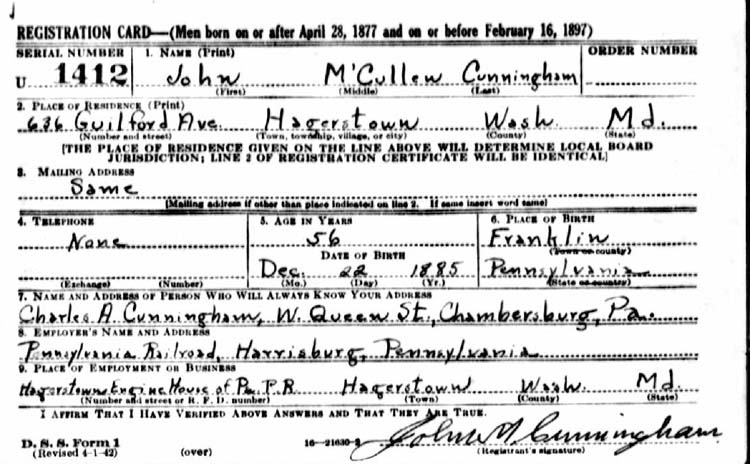 REGISTRATION CARD—(Men born on or after April 28, 1877 and on or before February 16, 1897)
SERIAL NUMBER 1. NAME (Print) ORDER NUMBER
U 1412 John M'Cullen Cunningham
(First) (Middle) (Last)
2. PLACE OF RESIDENCE (Print)
636 Guilford Ave. Hagerstown Wash. Md.
(Number and street) (Town, township, village, or city) (County) (State)
[THE PLACE OF RESIDENCE GIVEN ON THE LINE ABOVE WILL DETERMINE LOCAL BOARD
JURISDICTION; LINE 2 OF REGISTRATION CERTIFICATE WILL BE IDENTICAL]
3. MAILING ADDRESS
Same
[Mailing address if other than place indicated on line 2. If same insert word same]
4. TELEPHONE 5. AGE IN YEARS 6. PLACE OF BIRTH
None 56 Franklin
DATE OF BIRTH (Town or county)
Dec. 22 1885 Pennsylvania
(Exchange) (Number) (Mo.) (Day) (Yr.) (State or country)
7. NAME AND ADDRESS OF PERSON WHO WILL ALWAYS KNOW YOUR ADDRESS
Charles A. Cunningham, W. Queen St., Chambersburg, Pa.
8. EMPLOYER'S NAME AND ADDRESS
Pennsylvania Railroad, Harrisburg, Pennsylvania
9. PLACE OF EMPLOYMENT OR BUSINESS
Hagerstown Engine House of Pa. R.R. Hagerstown Wash. Md.
(Number and street or R. F. D. number) (Town) (County) (State)
I AFFIRM THAT I HAVE VERIFIED ABOVE ANSWERS AND THAT THEY ARE TRUE.
D. S. S. Form 1
(Revised 4-1-42) (over) 16—21630-2 John M Cunningham
(Registrant's signature)